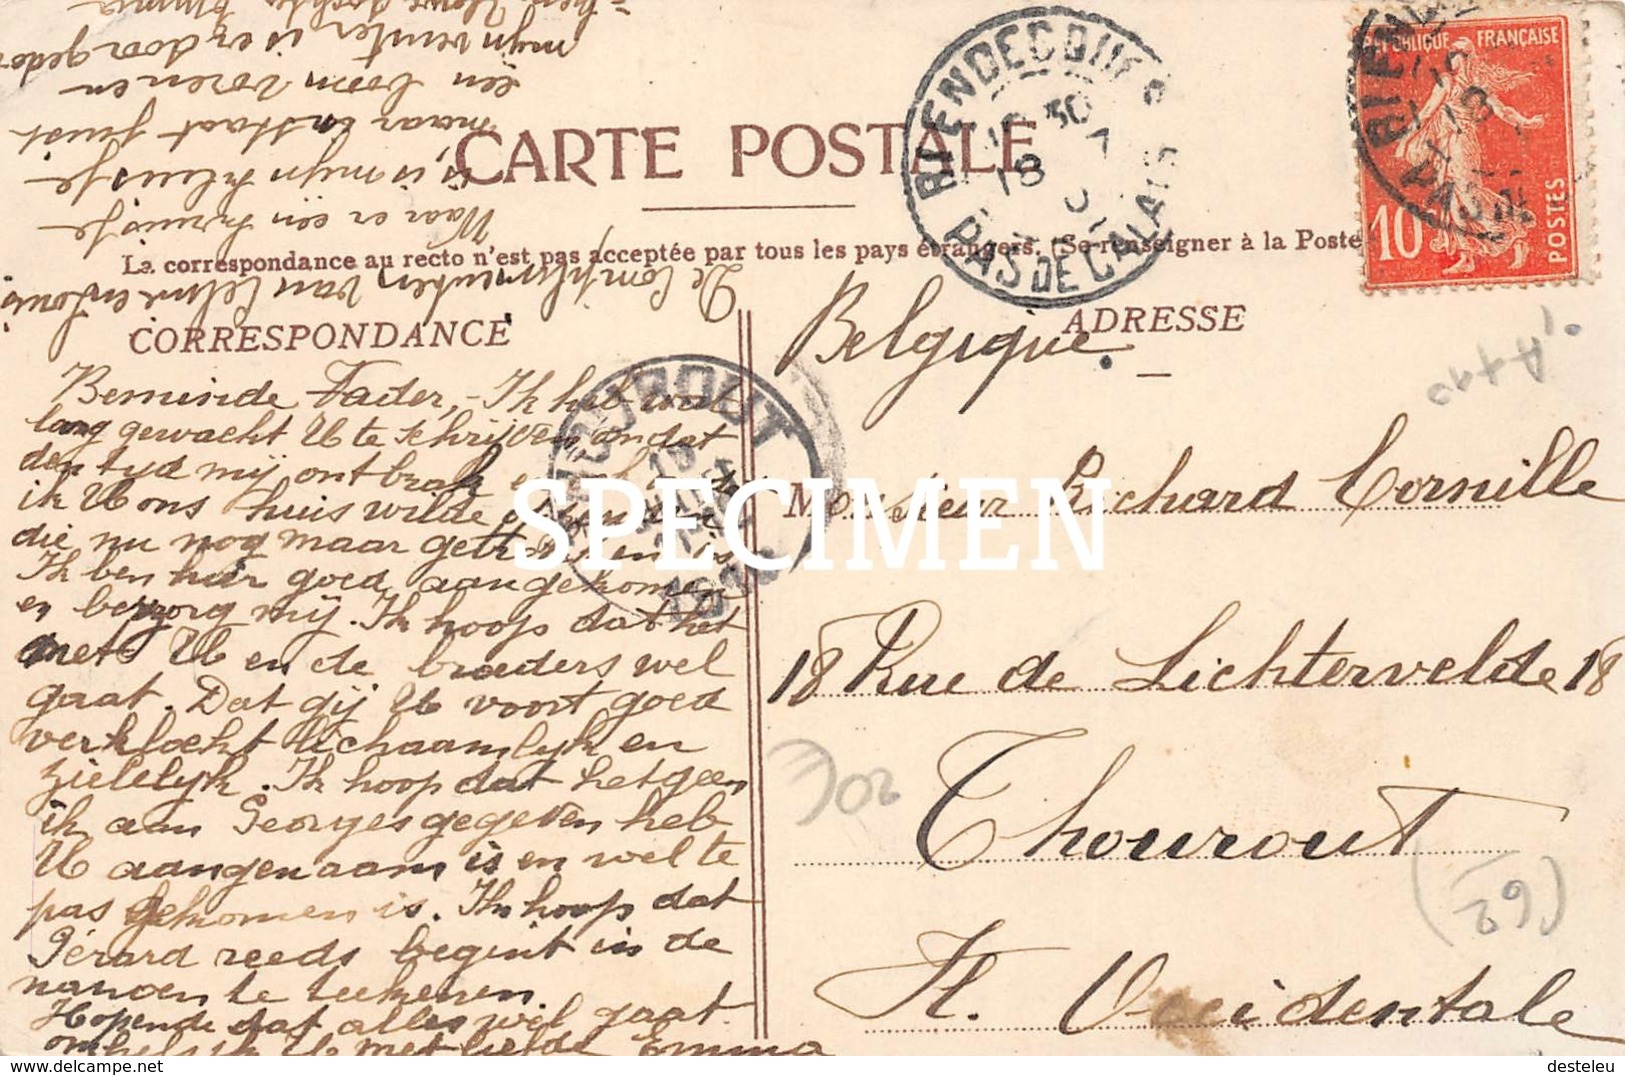 CARTE POSTALE
La correspondance au recto n'est pas acceptée par tous les pays étrangers. (Se renseigner à la Poste
CORRESPONDANCE
ADRESSE
RÉPUBLIQUE FRANÇAISE
10
POSTES
PAS DE CALAIS
SPECIMEN
Beminde Vader, - Ik heb wat
lang gewacht U te schrijven omdat
den tyd mij ontbrak en
ik U ons huis wilde
die nu nog maar getrokken is
Ik ben hier goed aangekomen
en bezorg mij. Ik hoop dat het
met U en de broeders wel
gaat. Dat gij U voort goed
verkloekt lichaamlyk en
zielelyk. Ik hoop dat hetgeen
ik aan Georges gegeven heb
U aangenaam is en wel te
pas gekomen is. Ik hoop dat
Gérard reeds begint in de
te teekenen.
Hopende dat alles wel gaat
ik U met liefde Emma
De Complimenten van Celine en Louis
Waar er een kruisje
is is mijn kluisje
maar er staat juist
een boom voren en
mijn venster is er door gedo
Uwe dochter Emma
Belgique.
Monsieur Richard Cornille
18 Rue de Lichtervelde 18
Thourout
Fl. Occidentale
20€
(62)
desteleu
www.delcampe.net